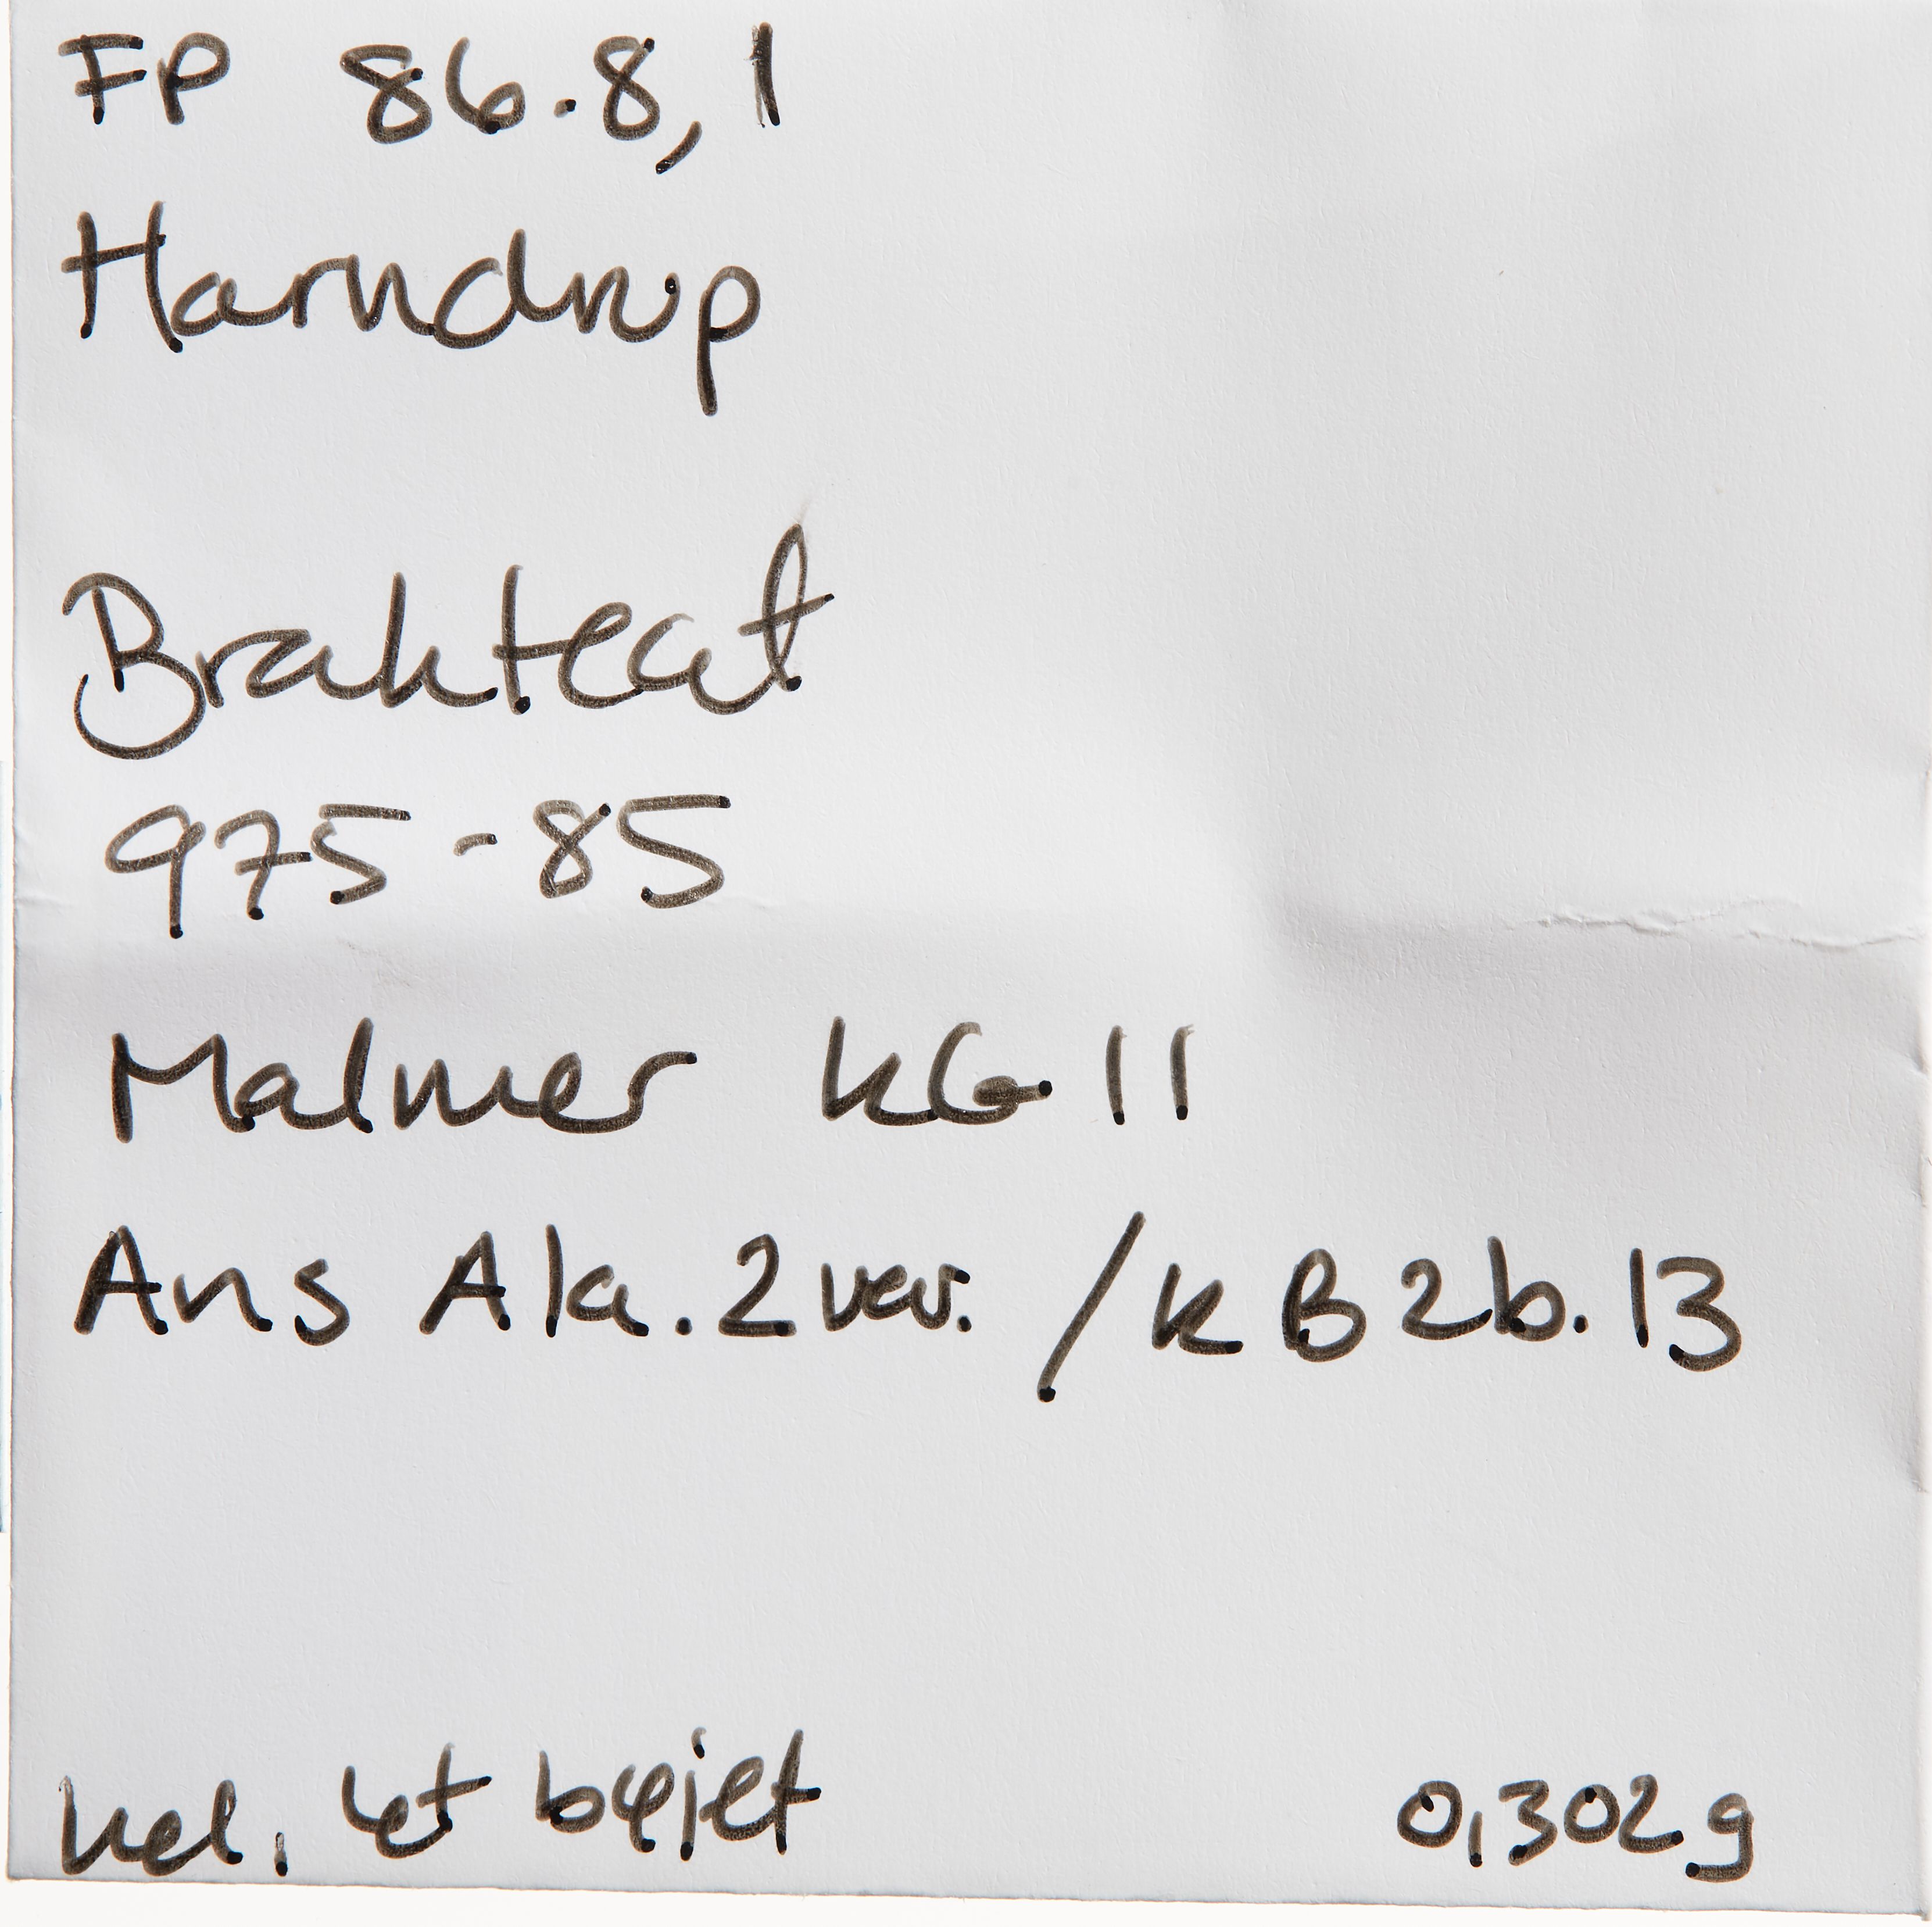 FP 86.8,1
Harndrup
Brakteat
975-85
Malmer KG 11
Ans A1a.2 var. / K B2b.13
hel, let bøjet 0,302 g